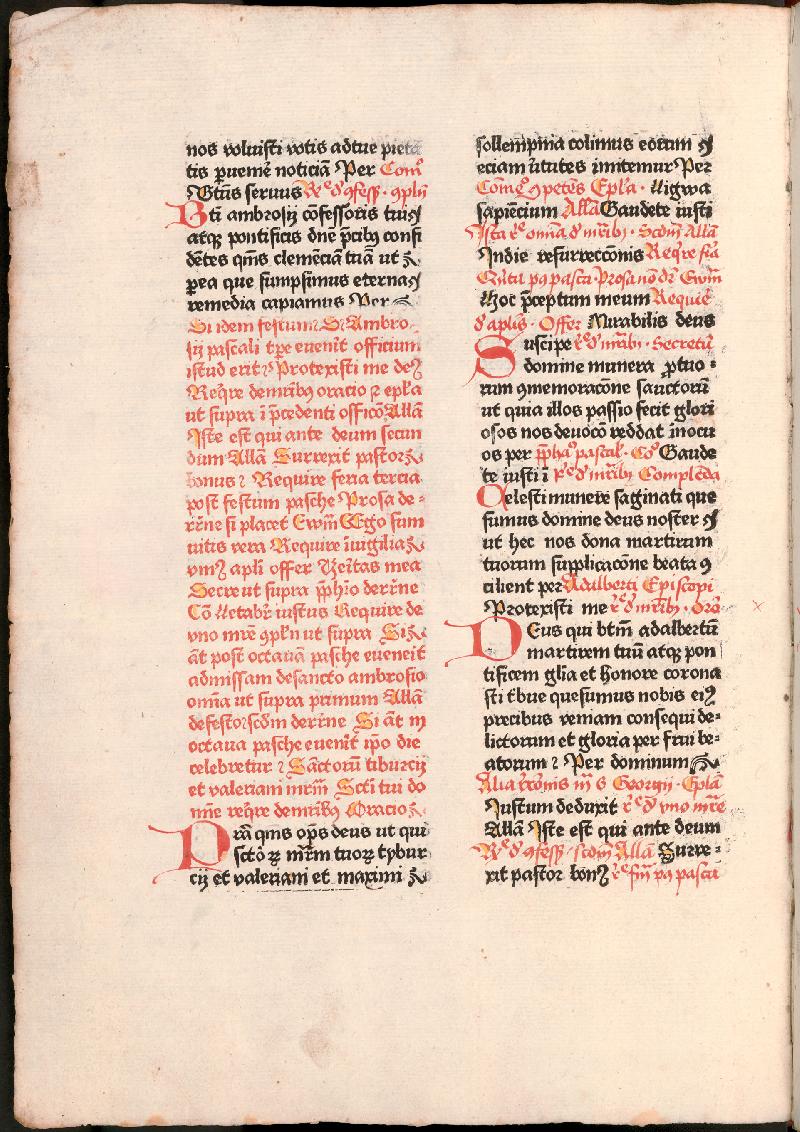 nos voluisti votis adtue pieta
tis ꝑuemr̄ noticiā Per Com̄
Btūs seruus
Bti ambrosij cōfessoris tuiqꝫ
atqꝫ pontificis dn̄e p̄cibꝰ confi
dētes qm̄s clemēciā tuā ut
ꝑea que sumpsimus eterna
remedia capiamus Per
Si idem festum Sci Ambro
sij pascali tp̄e euenit officium
istud erit Protexisti me deꝰ
Reqr̄e demribꝰ oracio ⁊ epl̄a
ut supra ī p̄cedenti officō Allā
Iste est qui ante deum secun
dum Allā Surrexit pastor
bonus ⁊ Require feria tercia
post festum pasche Prosa de-
si placet Ewm̄ Ego sum
uitis vera Require īuigilia
vniꝰ apli offer Veritas mea
Secre ut supra
Cō Letabr̄ iustus Require de
vno mr̄e ut supra Si
āt post octauā pasche eueneit
ad missam desancto ambrosio
omīa ut supra primum Allā
defesto scdm Si āt in
octaua pasche euenit ip̄o die
celebretur ⁊ Sāctorū tiburcij
et valeriani mrm̄ Scti tui do
mīe reqr̄e demribꝰ Oracio
Pra qms op̄s deus ut qui
sctōꝝ mr̄m tuoꝝ tybur
cij et valeriani et maximi
sollempnia colimus eorum
eciam v̄tutes imitemur Per
Com̄ Epl̄a · Ligwa
sapiēcium Allā Gaudete iusti
Ista · Scdm Allā
Indie resurreccōnis Reqr̄e
pasca Prosa Ewm̄
Hoc p̄ceptum meum Require
d' aplis · Offer Mirabilis deus
Suscipe · Secretū
domine munera ꝓ tuo-
rum ꝯmemoracōne sanctorū
ut quia illos passio fecit glori
osos nos deuocō reddat inocu
os per pascal · Cō Gaude
te iusti ī Complēda
Celesti munere saginati que
sumus domine deus noster
ut hec nos dona martirum
tuorum supplicacōne beata ꝯ
cilient per Adalberti Episcopi
Protexisti me · Oro
Deus qui btm̄ adalbertū
martirem tuū atqꝫ pon
tificem gl̄ia et honore corona
sti t̄bue quesumus nobis eiꝰ
precibus veniam consequi de-
lictorum et gloria per frui be-
atorum ⁊ Per dominum
Alia s Georgij · Epl̄a
Iustum deduxit vno mr̄e
Allā Iste est qui ante deum
scdm Allā Surre-
xit pastor bonꝰ pasca